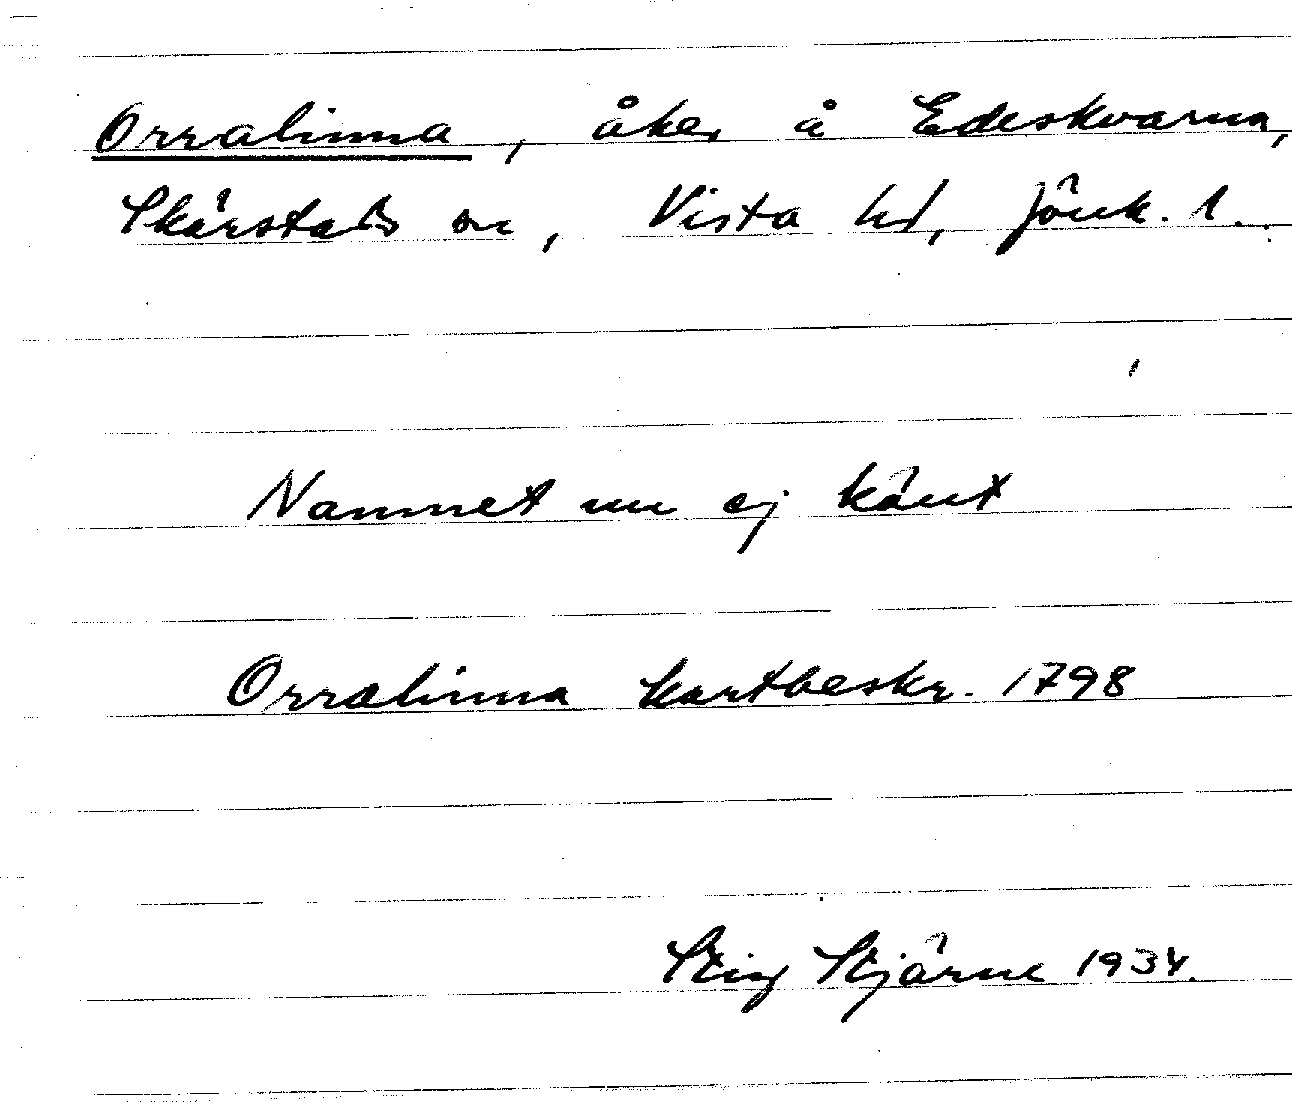 Orralinna, åker å Edeskvarna,
Skärstads sn, Vista hd, Jönk. l.
Namnet nu ej känt
Orralinna kartbeskr. 1798
Stig Stjärne 1934.